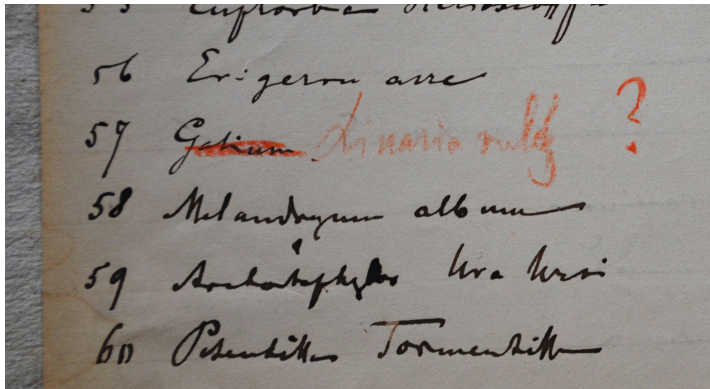 55 Euphorbia Helioscopia
56 Erigeron acre
57 Galium Linaria vulg ?
58 Melandryum album
59 Arctostaphylos Uva Ursi
60 Potentilla Tormentilla